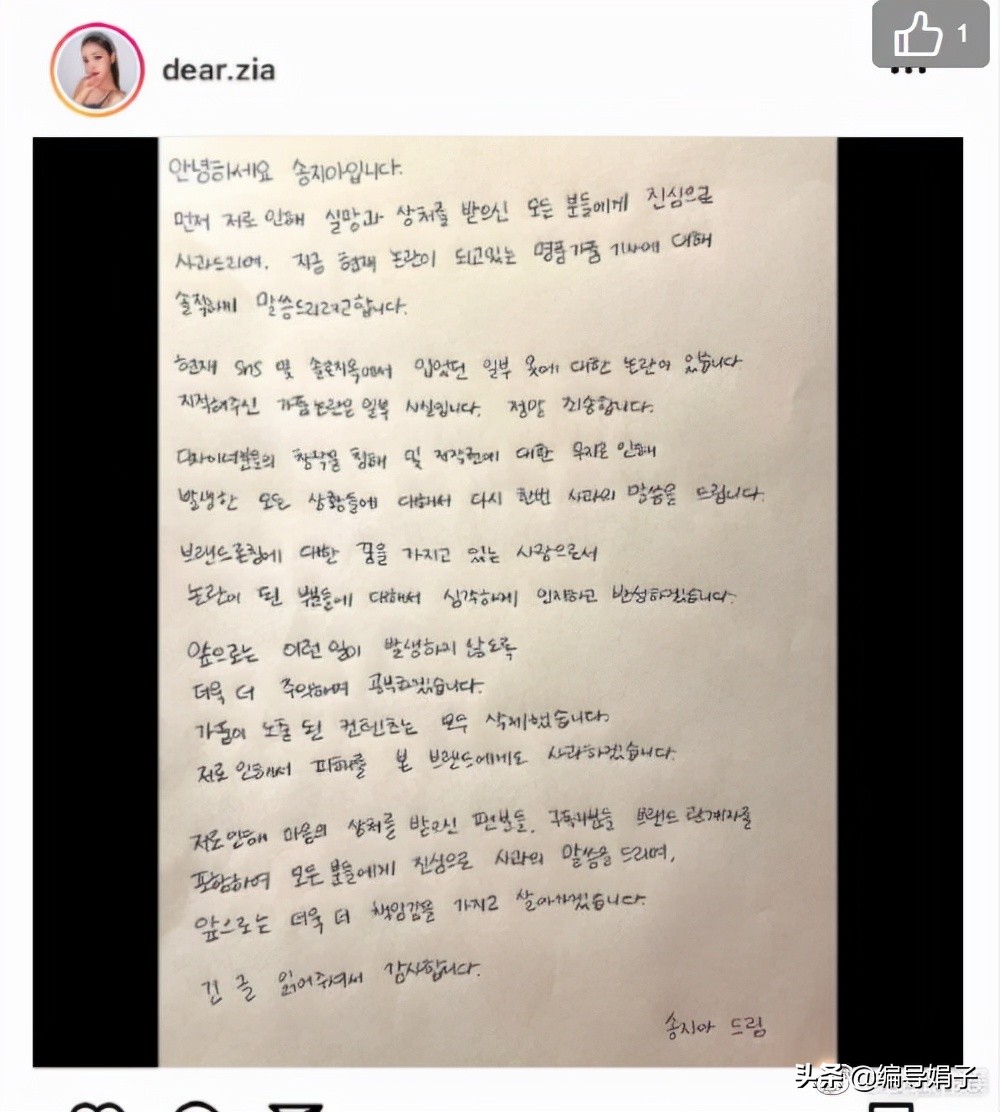 1
dear.zia
안녕하세요 송지아입니다.
먼저 저로 인해 실망과 상처를 받으신 모든 분들에게 진심으로
사과드리며, 지금 현재 논란이 되고있는 명품가품 기사에 대해
솔직하게 말씀드리려고합니다.
현재 SNS 및 솔로지옥에서 입었던 일부 옷에 대한 논란이 있습니다
지적해주신 가품논란은 일부 사실입니다. 정말 죄송합니다.
디자이너분들의 창작물 침해 및 저작권에 대한 무지로 인해
발생한 모든 상황들에 대해서 다시 한번 사과의 말씀을 드립니다.
브랜드론칭에 대한 꿈을 가지고 있는 사람으로서
논란이 된 부분들에 대해서 심각하게 인지하고 반성하겠습니다.
앞으로는 이런 일이 발생하지 않도록
더욱 더 주의하며 공부하겠습니다.
가품이 노출 된 컨텐츠는 모두 삭제했습니다.
저로 인해서 피해를 본 브랜드에게도 사과하겠습니다.
저로인해 마음의 상처를 받으신 팬분들, 구독자분들 브랜드 관계자를
포함하여 모든 분들에게 진심으로 사과의 말씀을 드리며,
앞으로는 더욱 더 책임감을 가지고 살아가겠습니다.
긴 글 읽어주셔서 감사합니다.
송지아 드림
头条 @编导娟子